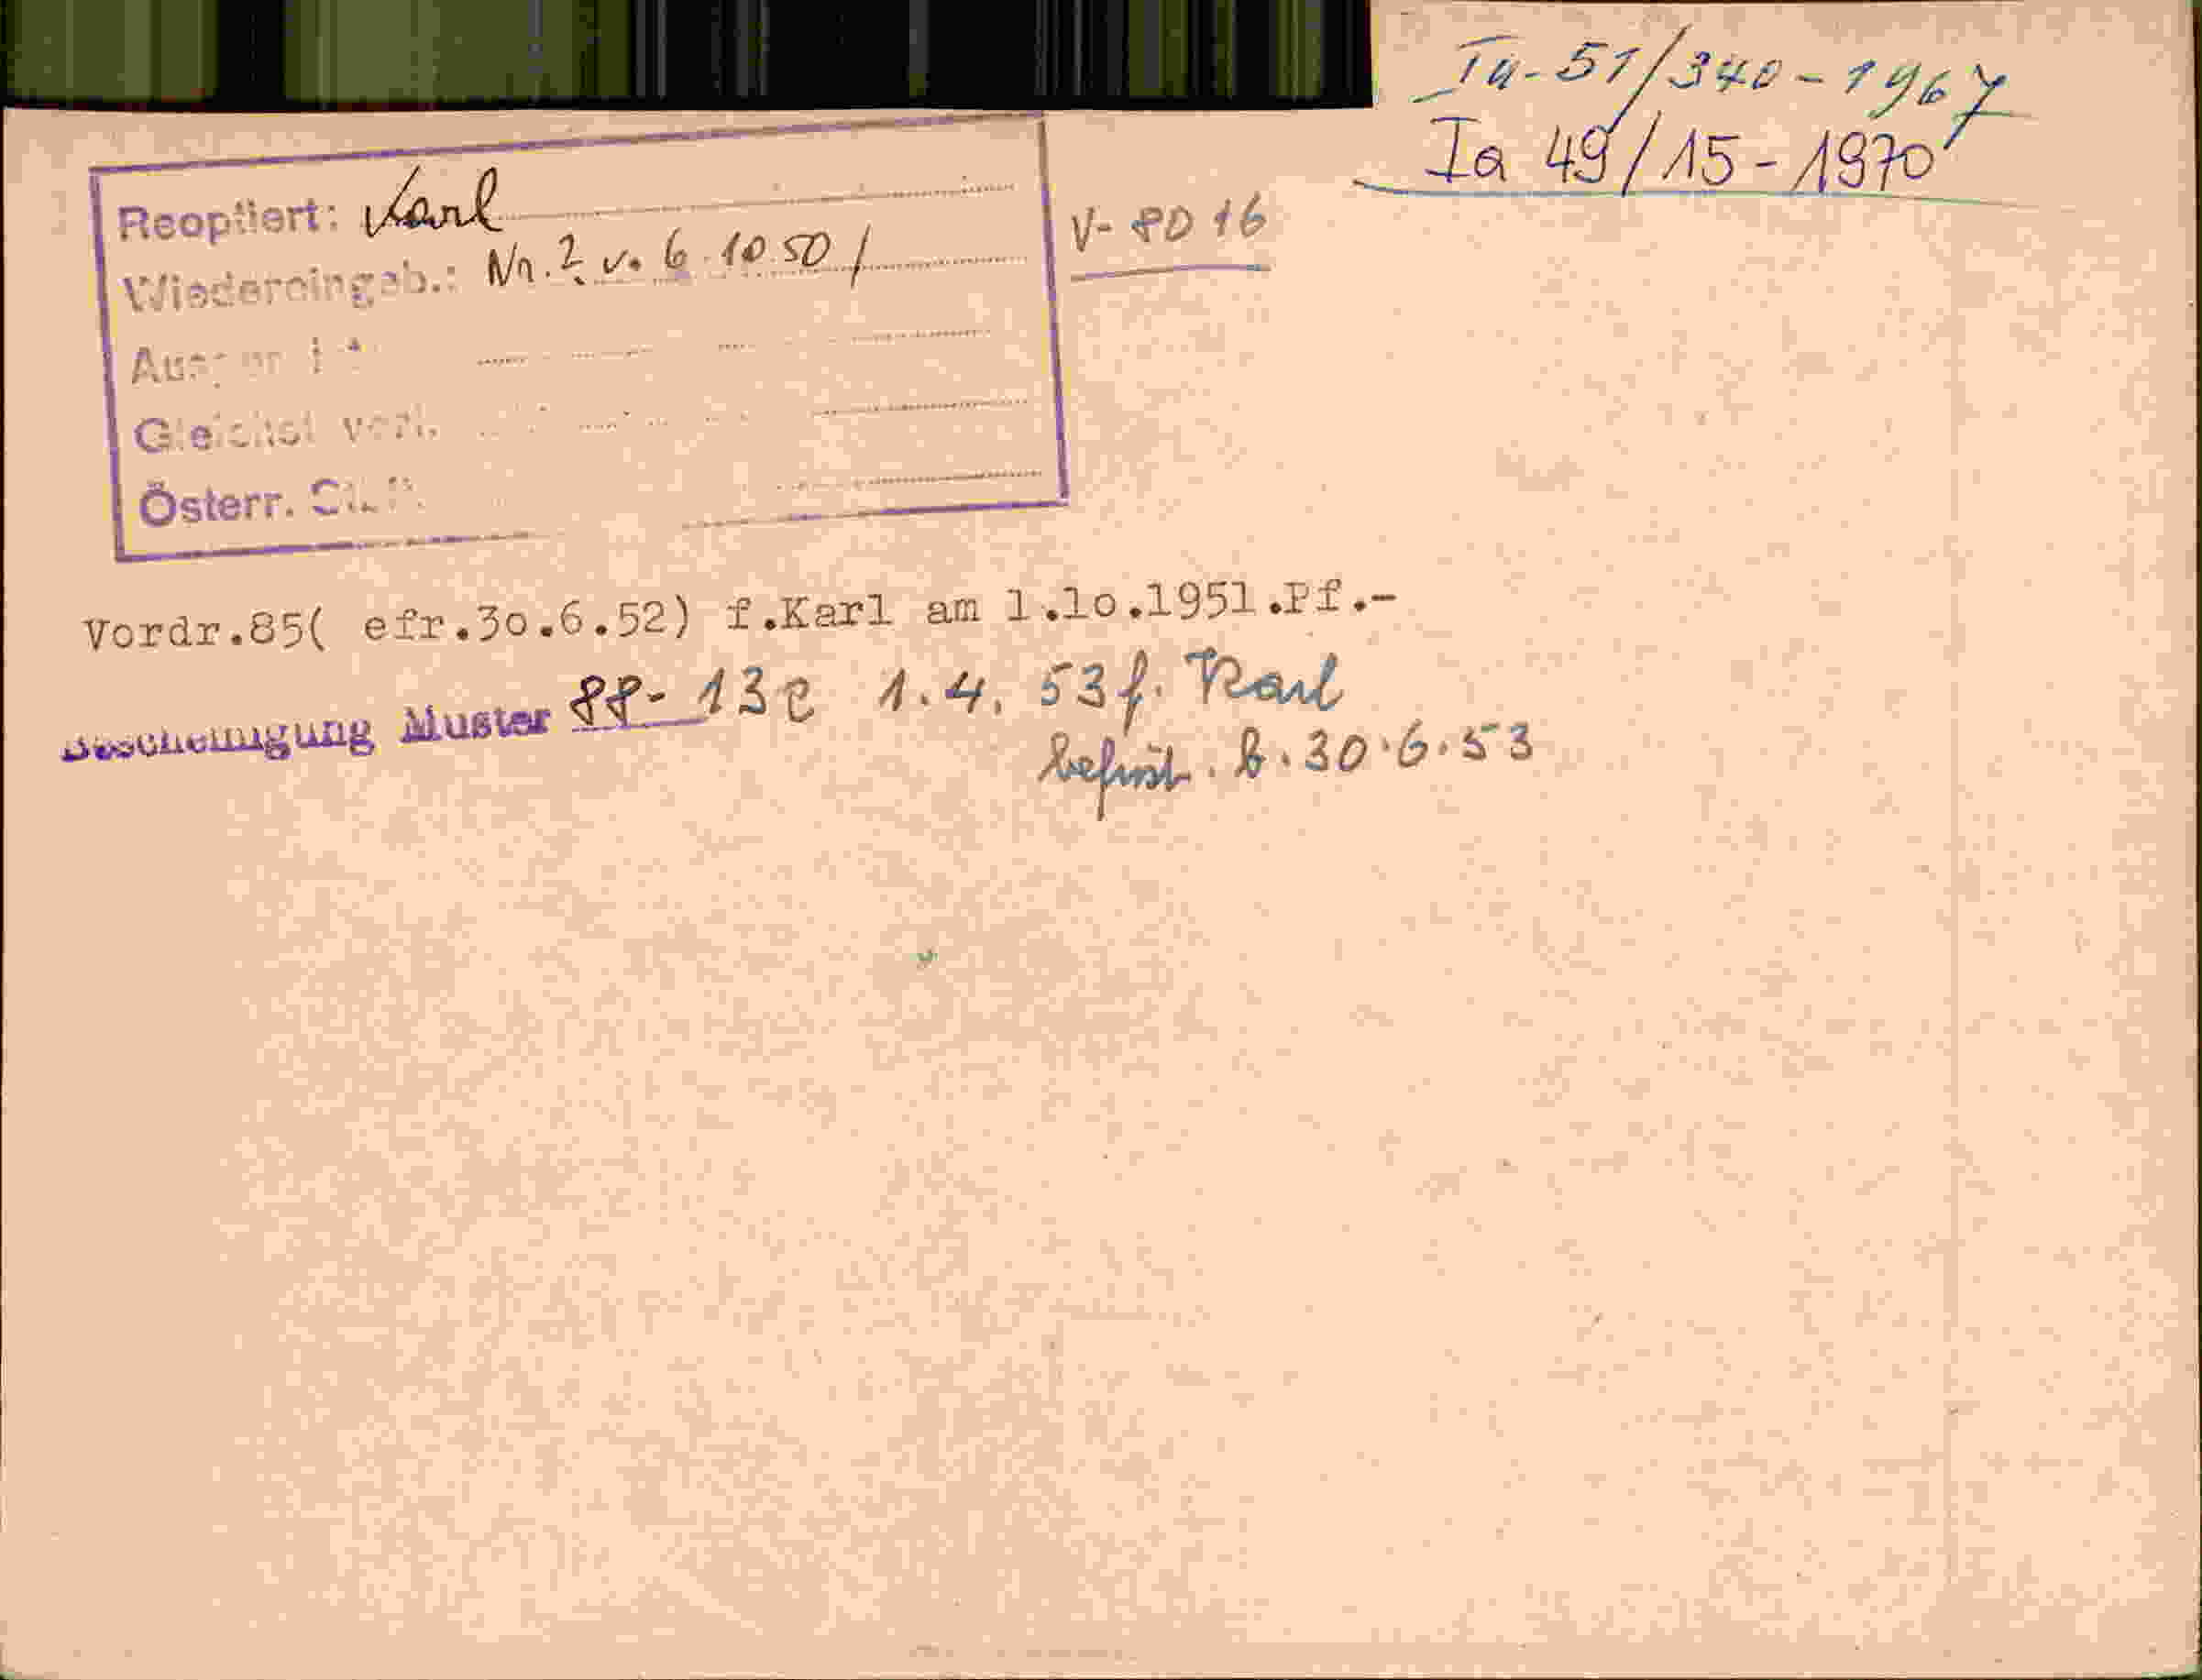 Ia-51/340-1967
Ia 49/15-1970
Reoptiert: Karl
Wiedereingeb.: Nr. 2 v. 6.10.50/
V-8D16
Gleichst verl.
Österr.
Vordr.85( efr.3o.6.52) f.Karl am 1.1o.1951.Pf.-
Bescheinigung Muster 88-13e 1.4.53 f. Karl
befrist. b. 30.6.53